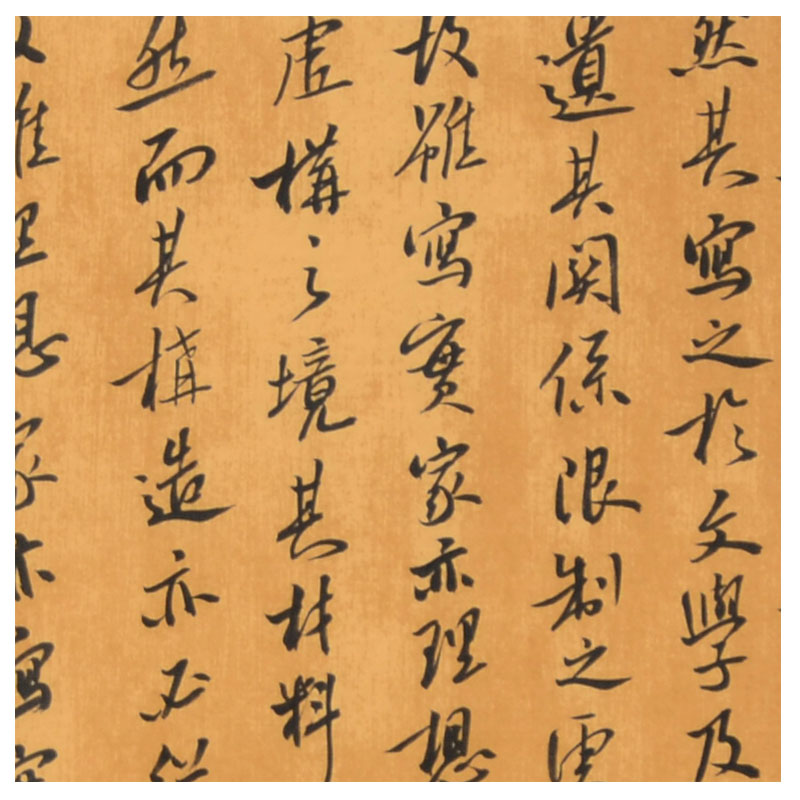 然其寫之於文學及
遺其關係限制之
故雖寫實家亦理想
虛構之境其材料
然而其構造亦必從
雖理想家亦寫